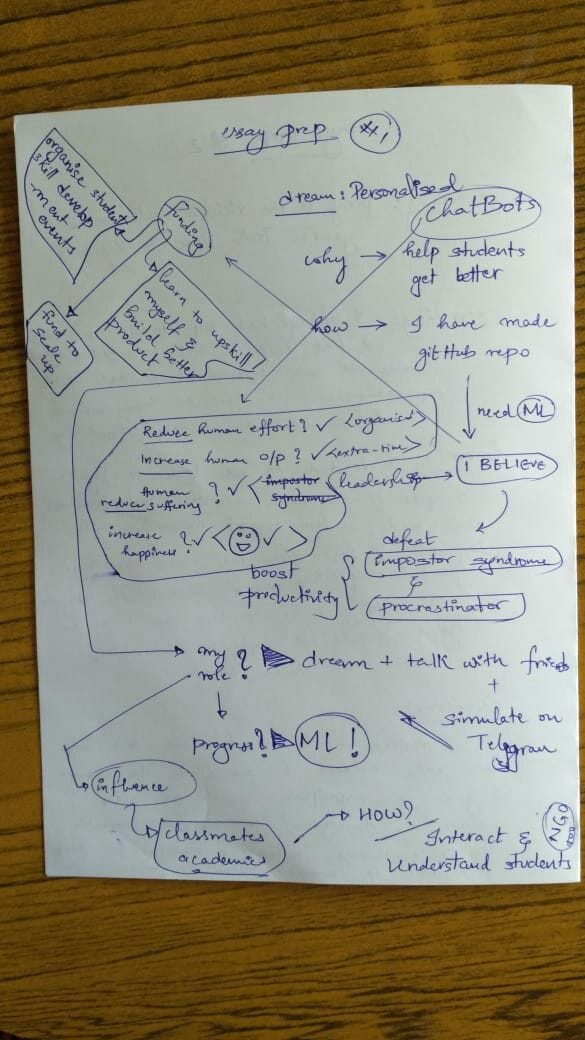 essay prep #1
organise student
skill develop
-ment
events
funding
dream: Personalised
ChatBots
why → help students
get better
learn to upskill
myself &
build better
product
fund to
scale
up.
how → I have made
gitHub repo
need ML
Reduce human effort? ✓ <organised>
Increase human o/p? ✓ <extra-time>
Human
reduce suffering ? ✓ < impostor
syndrome
leadership → I BELIEVE
increase
happiness ? ✓ < ☺ ✓ >
boost
productivity
defeat
impostor syndrome
&
procrastinator
my
role ? ▶ dream + talk with friends
+
simulate on
Telegram
progress? ▶ ML!
influence
classmates
academics
→ HOW?
Interact &
Understand students
NGO